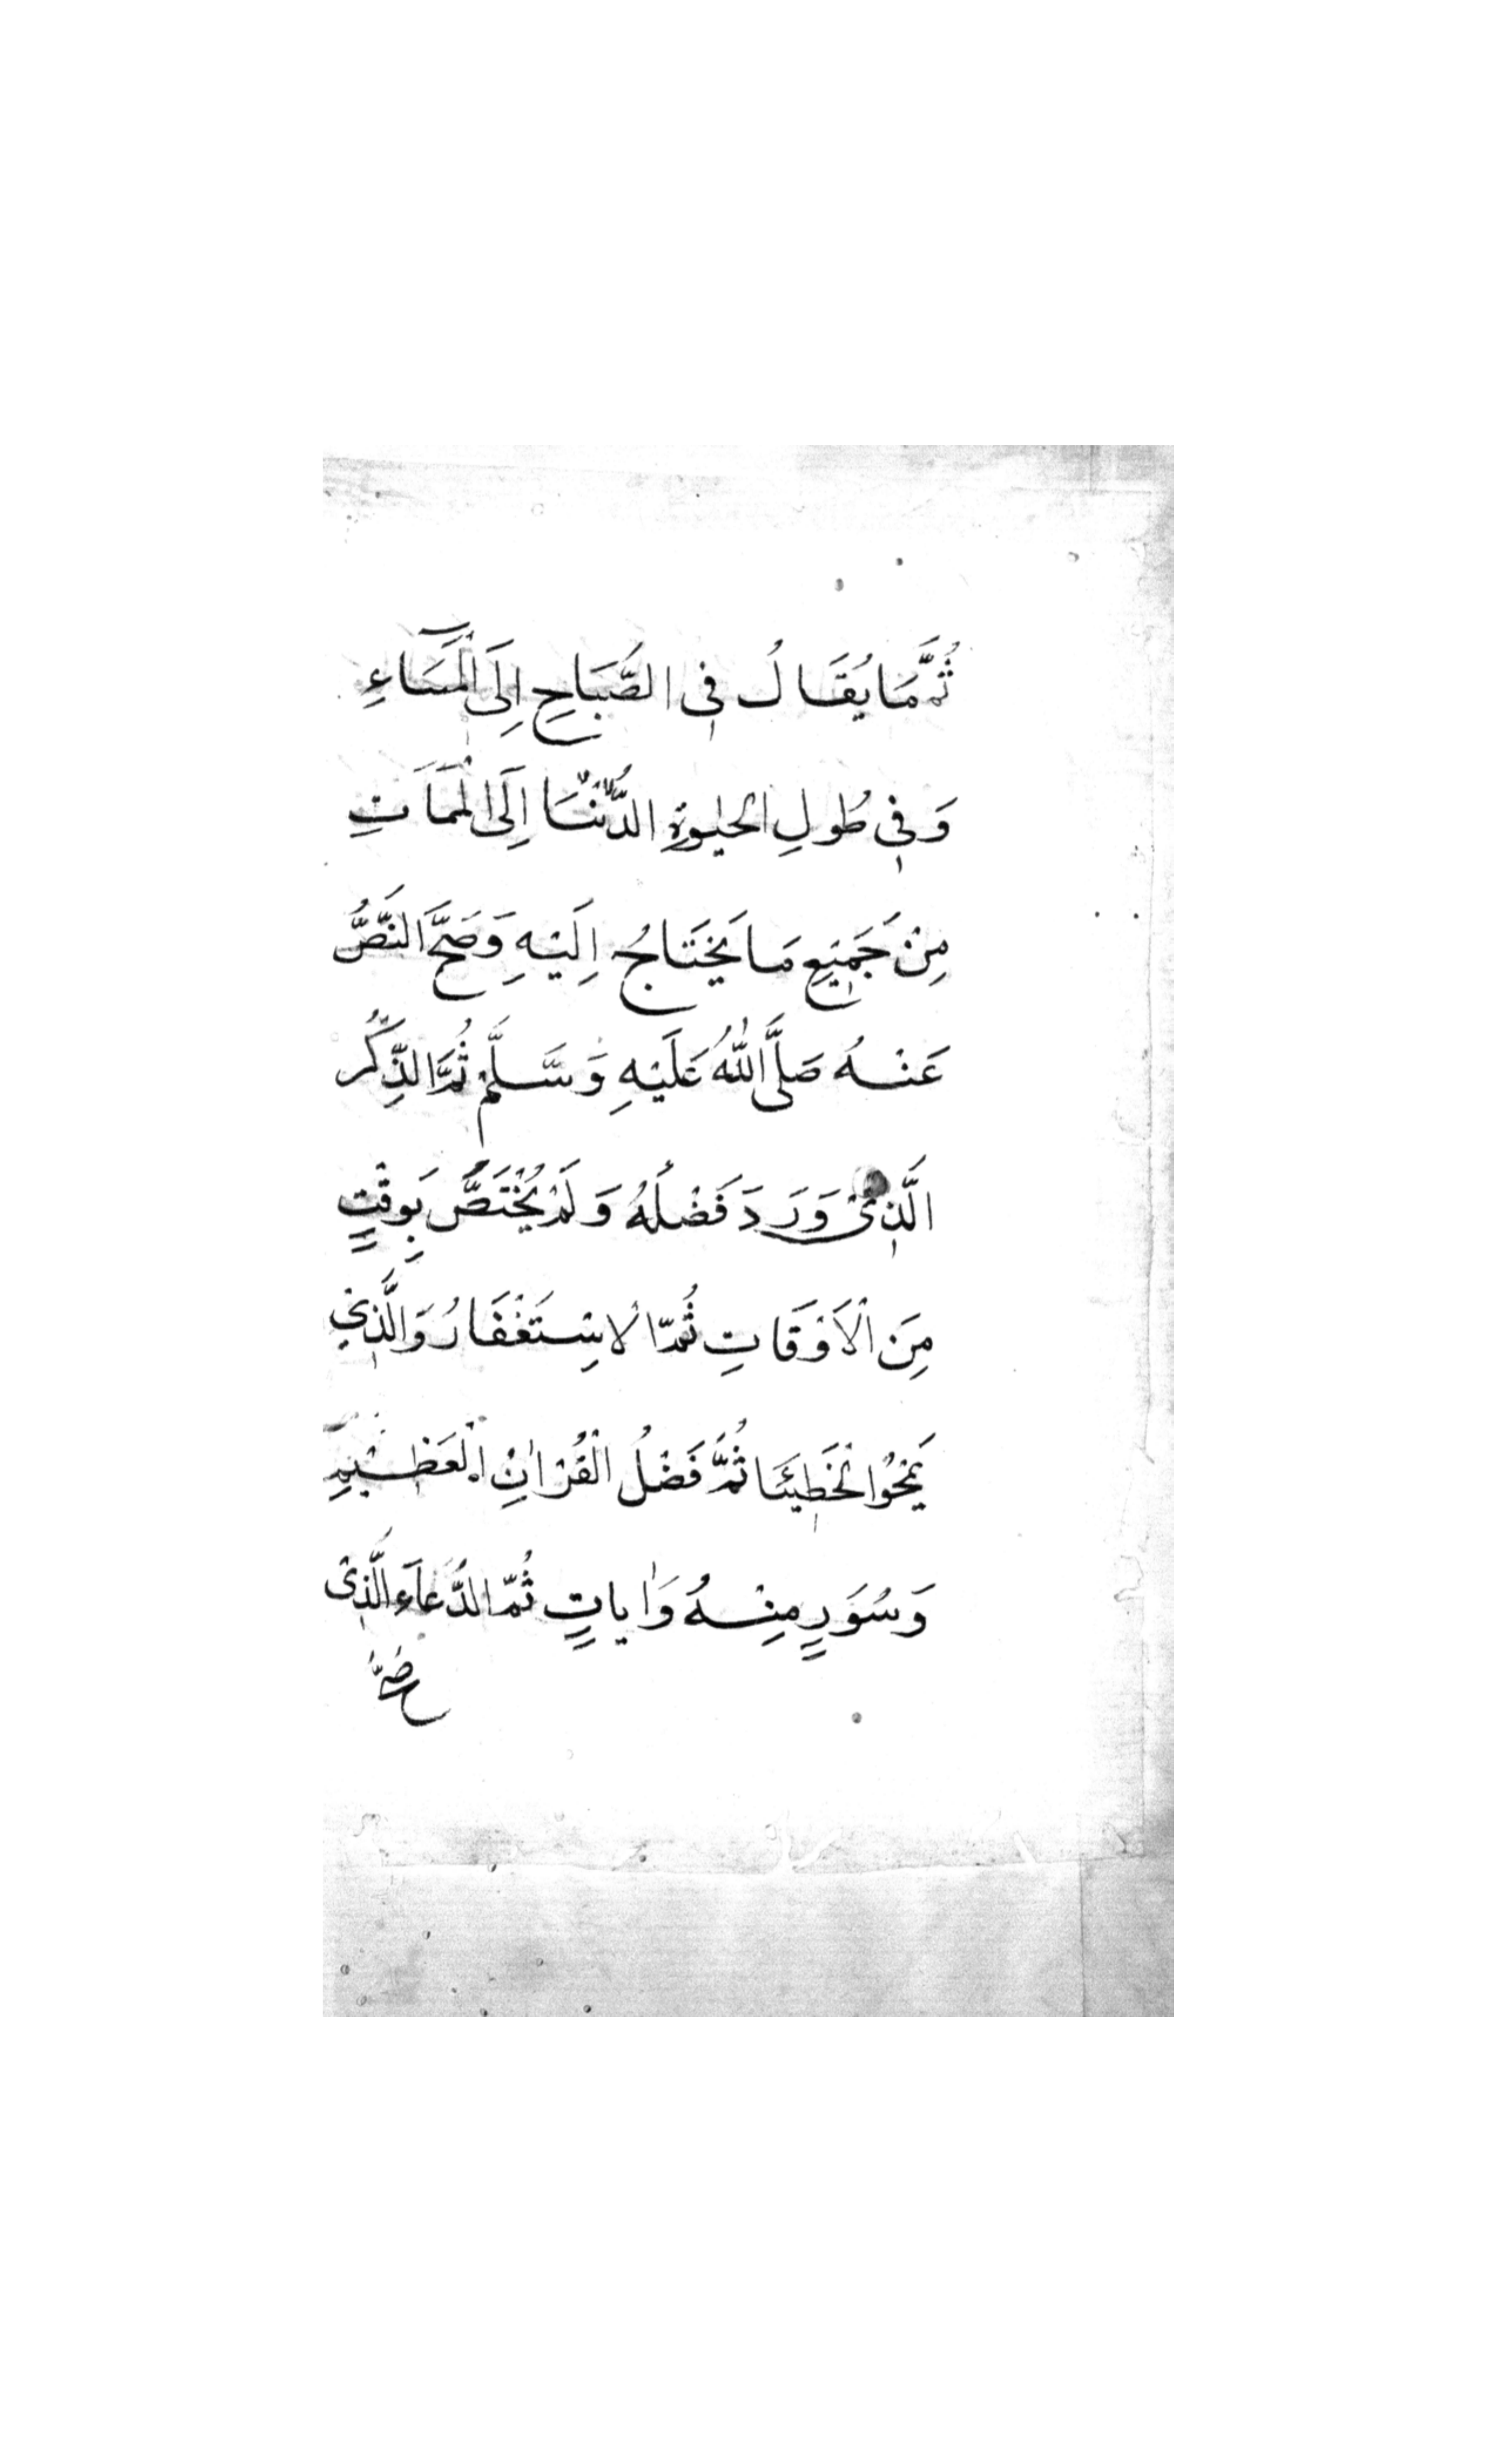 ثُمَّ مَا يُقَالُ فِي الصَّبَاحِ اِلَى الْمَسَاءِ
وَفِي طُولِ الْحَيٰوةِ الدُّنْيَا اِلَى الْمَمَاتِ
مِنْ جَمِيْعِ مَا يَحْتَاجُ اِلَيْهِ وَصَحَّ النَّصُّ
عَنْهُ صَلَّى اللّٰهُ عَلَيْهِ وَسَلَّمْ ثُمَّ الذِّكْرُ
الَّذِيْ وَرَدَ فَضْلُهُ وَلَمْ يُخْتَصَّ بِوَقْتٍ
مِنَ الْاَوْقَاتِ ثُمَّ الْاِسْتَغْفَارُ وَالَّذِيْ
يَمْحُوْا الْخَطِيْئَا ثُمَّ فَضْلُ الْقُرْاٰنِ الْعَظِيْمِ
وَسُوَرٍ مِنْهُ وَاٰيَاتٍ ثُمَّ الدُّعَاءِ الَّذِيْ